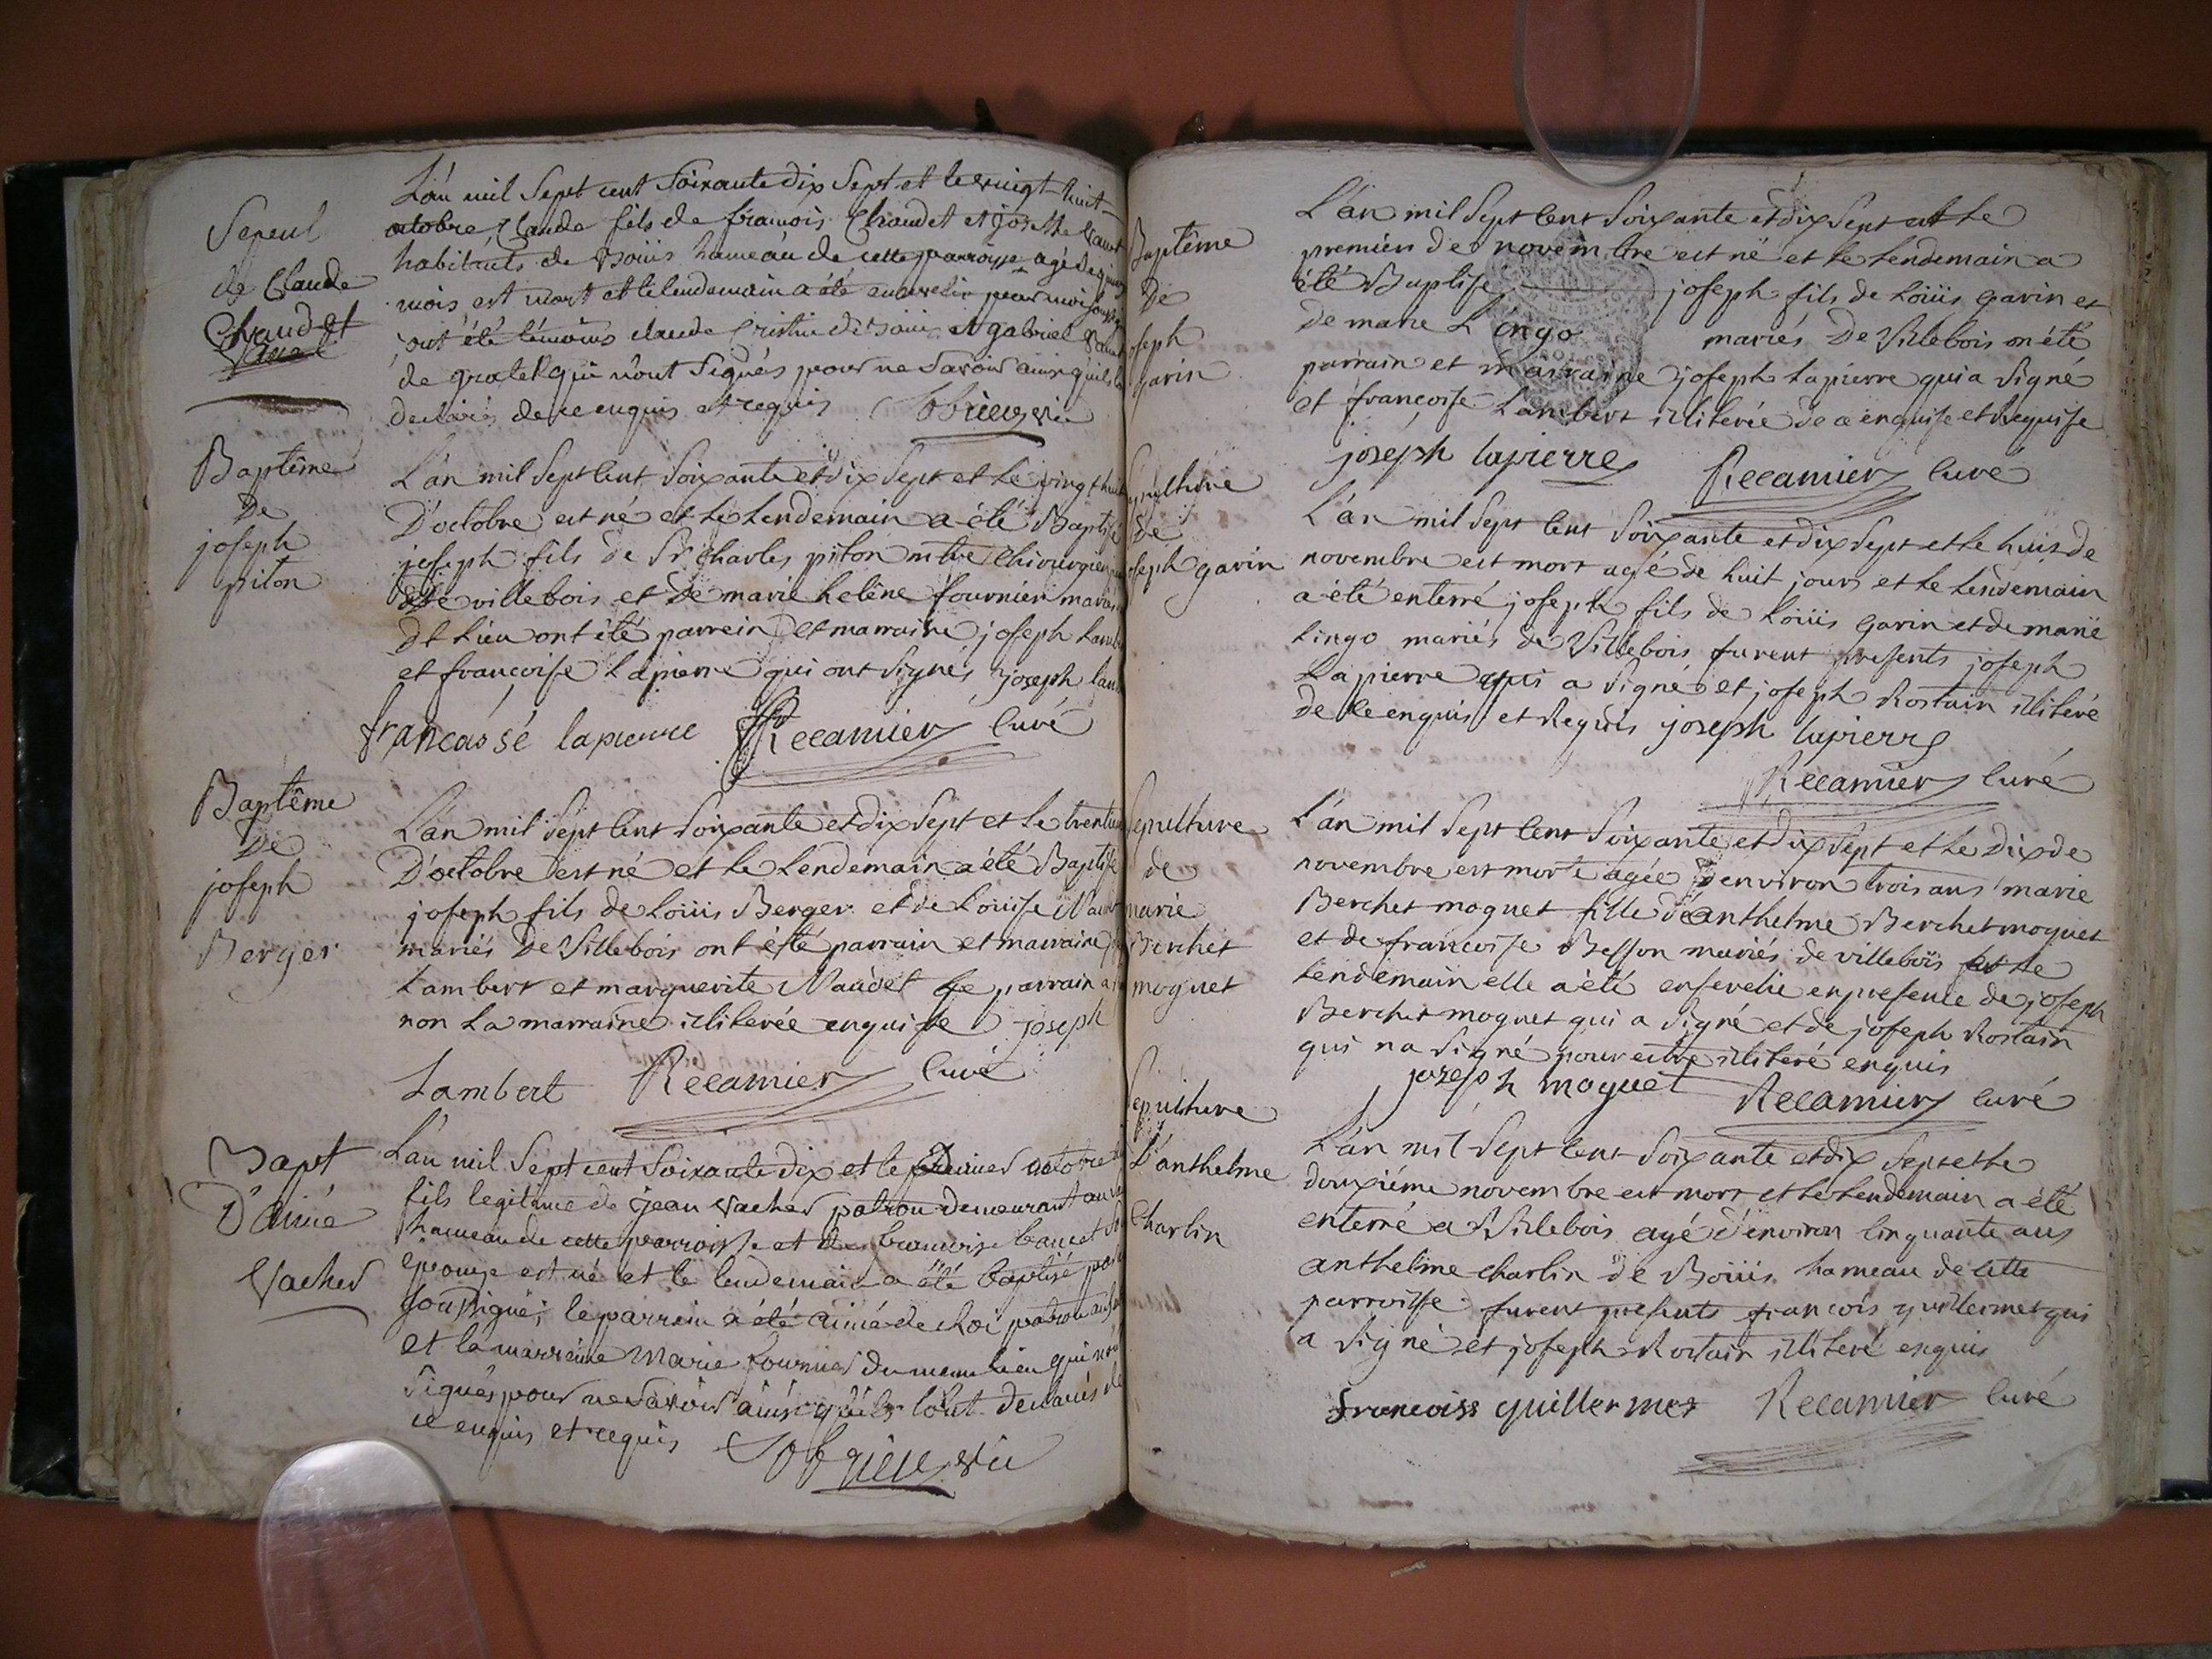 Sepul
de Claude
Chaudet
L'an mil Sept cent Soixante dix Sept et le vingt huit
octobre Claude fils de francois Chaudet et josette
habitants de Bouis hameau de cette parroisse agé de
mois est mort et le lendemain a été enseveli par moi soussigné
ont été témoins claude Cristin de Bouis et gabriel
de gratet qui n'ont Signés pour ne Savoir ainsi quils
declarés de ce enquis et requis Sobrieux vic
Baptême
De
joseph
piton
L'an mil Sept Cent Soixante et dix Sept et le vingt huit
D'octobre est né et le Lendemain a été Baptisé
joseph fils de Sr Charles piton mtre Chirurgien
de villebois et de marie helêne fournier mariés
dt Lieu ont été parrein et marraine joseph Lambert
et francoise Lapierre qui ont Signés joseph lam
francoisse lapierre Recamier Curé
Baptême
De
joseph
Berger
L'an mil Sept Cent Soixante et dix Sept et le trente
D'octobre est né et le Lendemain a été Baptisé
joseph fils de Loüis Berger et de Loüise
mariés De Villebois ont été parrain et marraine
Lambert et marguerite Naudet le parrain a
non La marraine illiterée enquise joseph
Lambert Recamier Curé
Bapt
D'aimé
Vacher
L'an mil Sept cent Soixante dix et le octobre
fils legitime de jean Vacher patron demeurant au
hameau de cette parroisse et de francoise
epouse est né et le lendemain a été baptisé par
Soussigné; le parrein a été aimé de choi patron
et la marreine Marie fournier du meme lieu qui n'ont
Signés pour ne Savoir ainsi quils l'ont declarés de
ce enquis et requis Sobrieux vic
Baptême
De
joseph
garin
L'an mil Sept Cent Soixante et dix Sept et le
premier de novembre est né et le Lendemain a
été Baptisé joseph fils de Loüis garin et
de marie Lingo mariés De Villebois on été
parrain et marraine joseph Lapierre qui a Signé
et francoise Lambert illiterée de ce enquise et Requise
joseph lapierre Recamier Curé
Sepulture
de
joseph garin
L'an mil Sept Cent Soixante et dix Sept et le huit de
novembre est mort agé de huit jours et le Lendemain
a été enterré joseph fils de Loüis garin et de marie
Lingo mariés de Villebois furent presents joseph
Lapierre qui a Signé et joseph Rostain illiteré
de ce enquis et Requis joseph lapierre
Recamier Curé
Sepulture
de
marie
Berchet
moguet
L'an mil Sept Cent Soixante et dix Sept et le Dix de
novembre est morte agée denviron trois ans marie
Berchet moguet fille d'anthelme Berchet moguet
et de francoise Besson mariés de villebois et le
Lendemain elle a été ensevelie en presence de joseph
Berchet moguet qui a Signé et de joseph Rostain
qui na Signé pour estre illiteré enquis
joseph moguet Recamier Curé
Sepulture
D'anthelme
Charlin
L'an mil Sept Cent Soixante et dix Sept et le
douxiéme novembre est mort et le Lendemain a été
enterré a Villebois agé d'environ Cinquante ans
anthelme Charlin de Boüis hameau de cette
parroisse furent presents francois guillermet qui
a Signé et joseph Rostain illiteré enquis
francoiss guillermet Recamier Curé